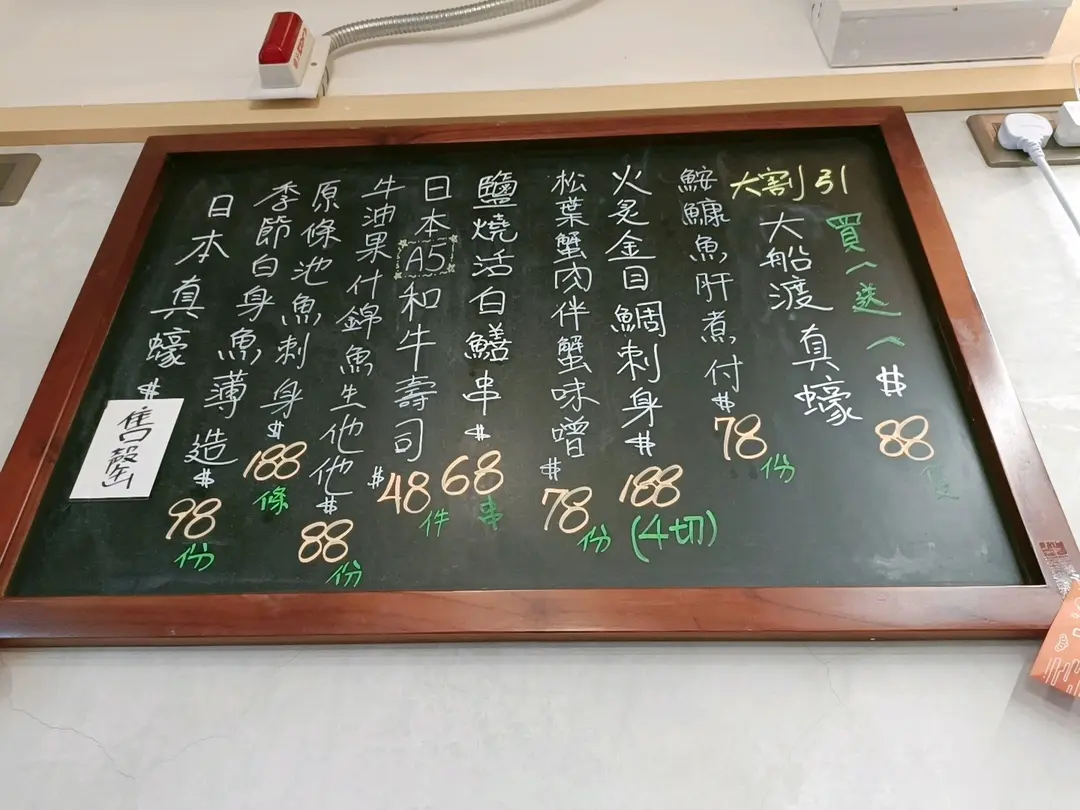 大割引
買一送一
大船渡真蠔
$88
隻
鮟鱇魚肝煮付
$78
份
火炙金目鯛刺身
$188
(4切)
松葉蟹肉伴蟹味噌
$78
份
鹽燒活白鱔串
$68
串
日本A5和牛壽司
$48
件
牛油果什錦魚生他他
$88
份
原條池魚刺身
$188
條
季節白身魚薄造
$98
份
日本真蠔
$
售罄